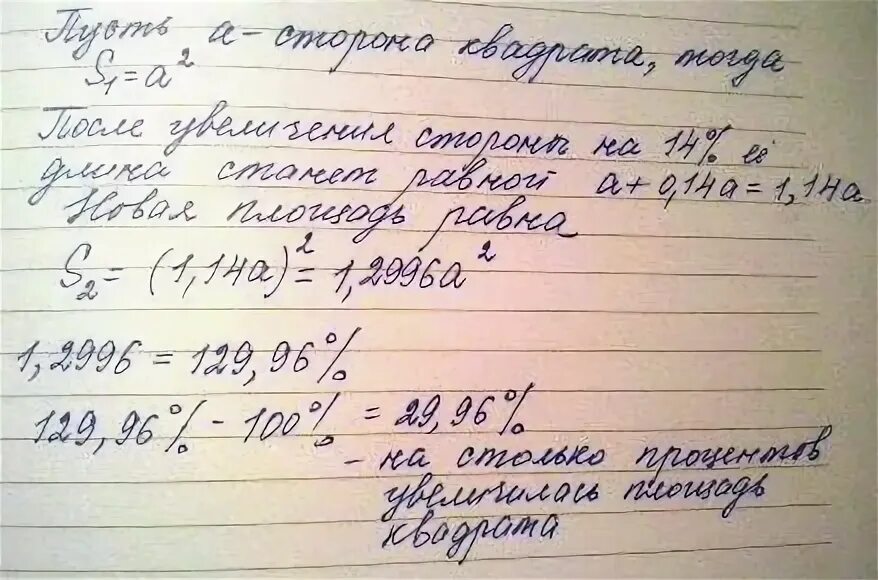 Пусть а - сторона квадрата, тогда
S₁ = a²
После увеличения стороны на 14% её
длина станет равной a + 0,14a = 1,14a
Новая площадь равна
S₂ = (1,14a)² = 1,2996a²
1,2996 = 129,96%
129,96% - 100% = 29,96%
- на столько процентов
увеличилась площадь
квадрата